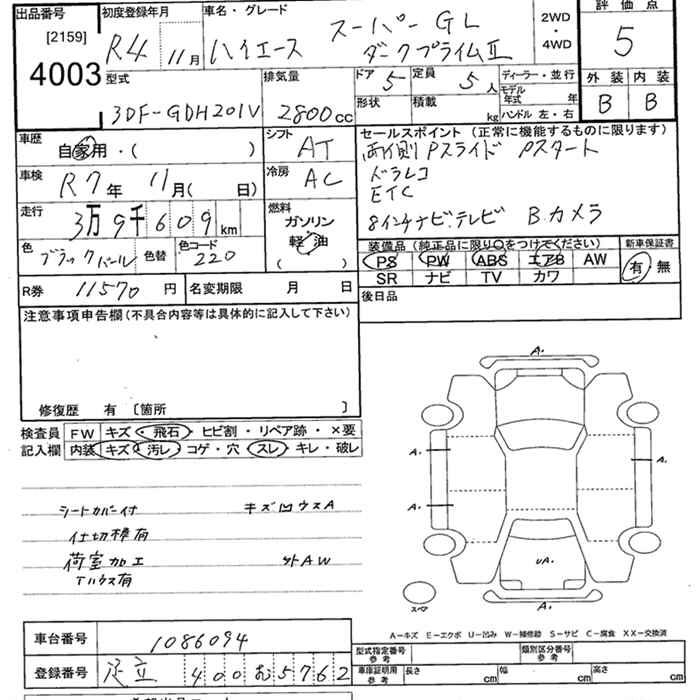 出品番号 初度登録年月 車名・グレード 評価点
[2159]
4003
R4 11月 ハイエース スーパーGL ダークプライムⅡ 2WD・4WD 5
型式 排気量 ドア 定員 ディーラー・並行 外装 内装
3DF-GDH201V 2800cc 5 5人 モデル年式 年 B B
形状 積載 kg ハンドル 左・右
車歴 自家用・( ) シフト AT
セールスポイント (正常に機能するものに限ります)
両側Pスライド Pスタート
ドラレコ
ETC
8インチナビ、テレビ Bカメラ
車検 R7年 11月( 日) 冷房 AC
走行 3万9千609km 燃料 ガソリン 軽油 ( )
色 ブラックパール 色替 色コード 220
装備品 (純正品に限り○をつけてください) 新車保証書
PS PW ABS エアB AW 有・無
SR ナビ TV カワ
R券 11570円 名変期限 月 日
後日品
注意事項申告欄 (不具合内容等は具体的に記入して下さい)
修復歴 有 〔箇所 〕
検査員 FW キズ・飛石・ヒビ割・リペア跡・×要
記入欄 内装 キズ・汚レ・コゲ・穴・スレ・キレ・破レ
シートカバー付 キズ凹ウスA
仕切棒有
荷室加工 外AW
Tハウス有
A.
A. A.
A.
UA.
A.
スペア
A-キズ E-エクボ U-凹み W-補修跡 S-サビ C-腐食 XX-交換済
車台番号 1086094
型式指定番号 参考 類別区分番号 参考
登録番号 足立 400 お 5762
車庫証明用 参考 長さ cm 幅 cm 高さ cm